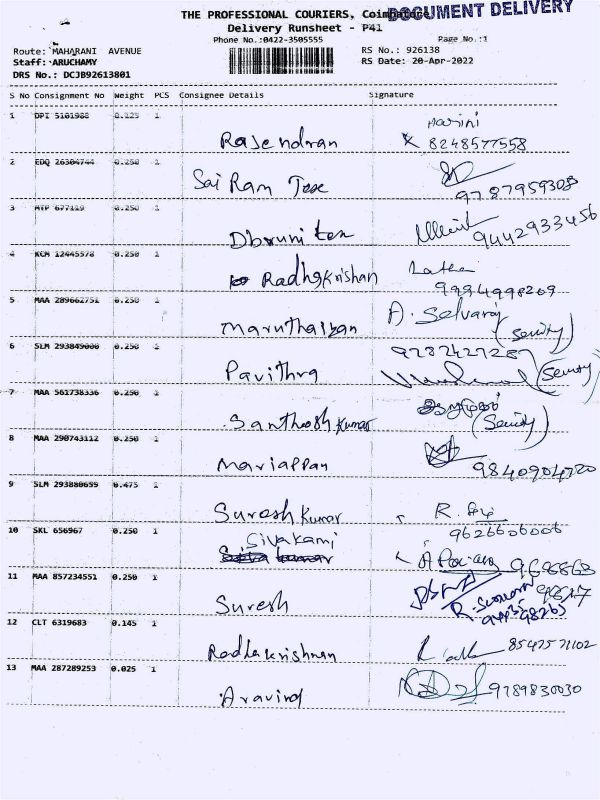 THE PROFESSIONAL COURIERS, Coimbatore
DOCUMENT DELIVERY
Delivery Runsheet - P41
Phone No.:0422-3505555 Page No.:1
Route: MAHARANI AVENUE RS No.: 926138
Staff: ARUCHAMY RS Date: 20-Apr-2022
DRS No.: DCJB92613801
S No Consignment No Weight PCS Consignee Details Signature
1 DPI 5101988 0.125 1
Harini
Rajendran 8248577558
2 EDQ 26304744 0.250 1
Sai Ram Jose
9787959308
3 MTP 677119 0.250 1
9442933456
4 KCM 12445578 0.250 1
Radhakrishan Latha
9994998209
5 MAA 289662751 0.250 1
A. Selvaraj
(Security)
6 SLM 293849000 0.250 1
9787427287
Pavithra (Security)
7 MAA 561738336 0.250 1
Santhosh Kumar (Security)
8 MAA 290743112 0.250 1
Mariappan 9840904720
9 SLM 293880699 0.475 1
Suresh Kumar
10 SKL 656967 0.250 1
9626606006
Sivakami
11 MAA 857234551 0.250 1
Suresh
12 CLT 6319683 0.145 1
Radhakrishnan 8547571102
13 MAA 287289253 0.025 1
Aravind 9789830030